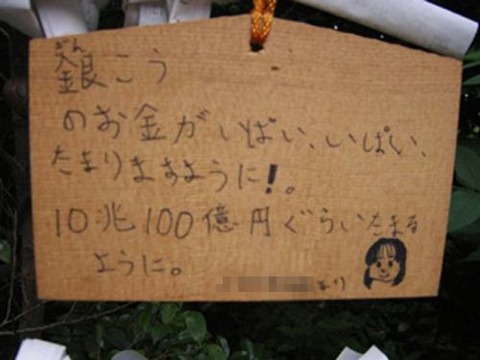 銀こう
のお金がいぱい、いぱい、
たまりますように!。
10兆100億円ぐらいたまる
ように。
より